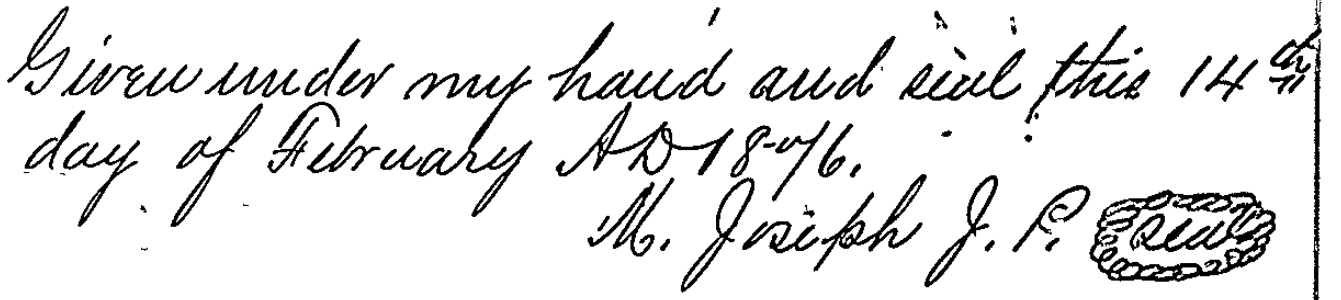 Given under my hand and seal this 14th
day of February AD 1876.
M. Joseph J. P. seal